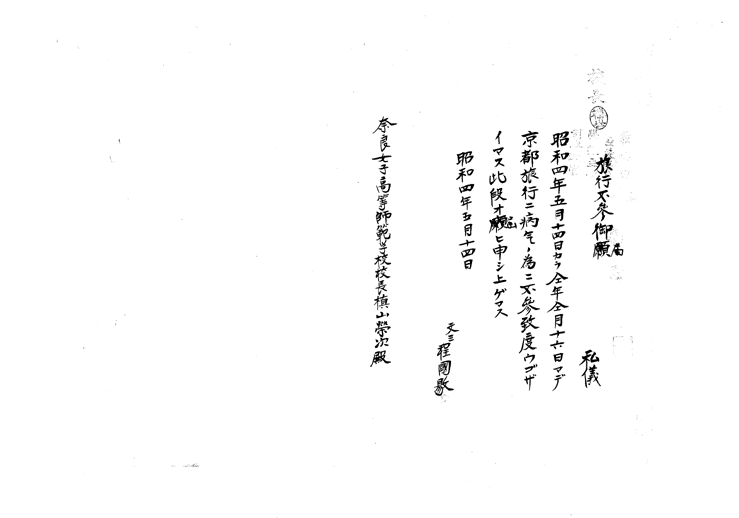 校長
旅行不参御願
届
私儀
昭和四年五月十四日カラ仝年仝月十六日マデ
京都旅行ニ病気ノ為ニ不参致度ウゴザ
イマス此段オ願ヒ申シ上ゲマス
届
昭和四年五月十四日
文三 程國敭
奈良女子高等師範学校校長槙山榮次殿